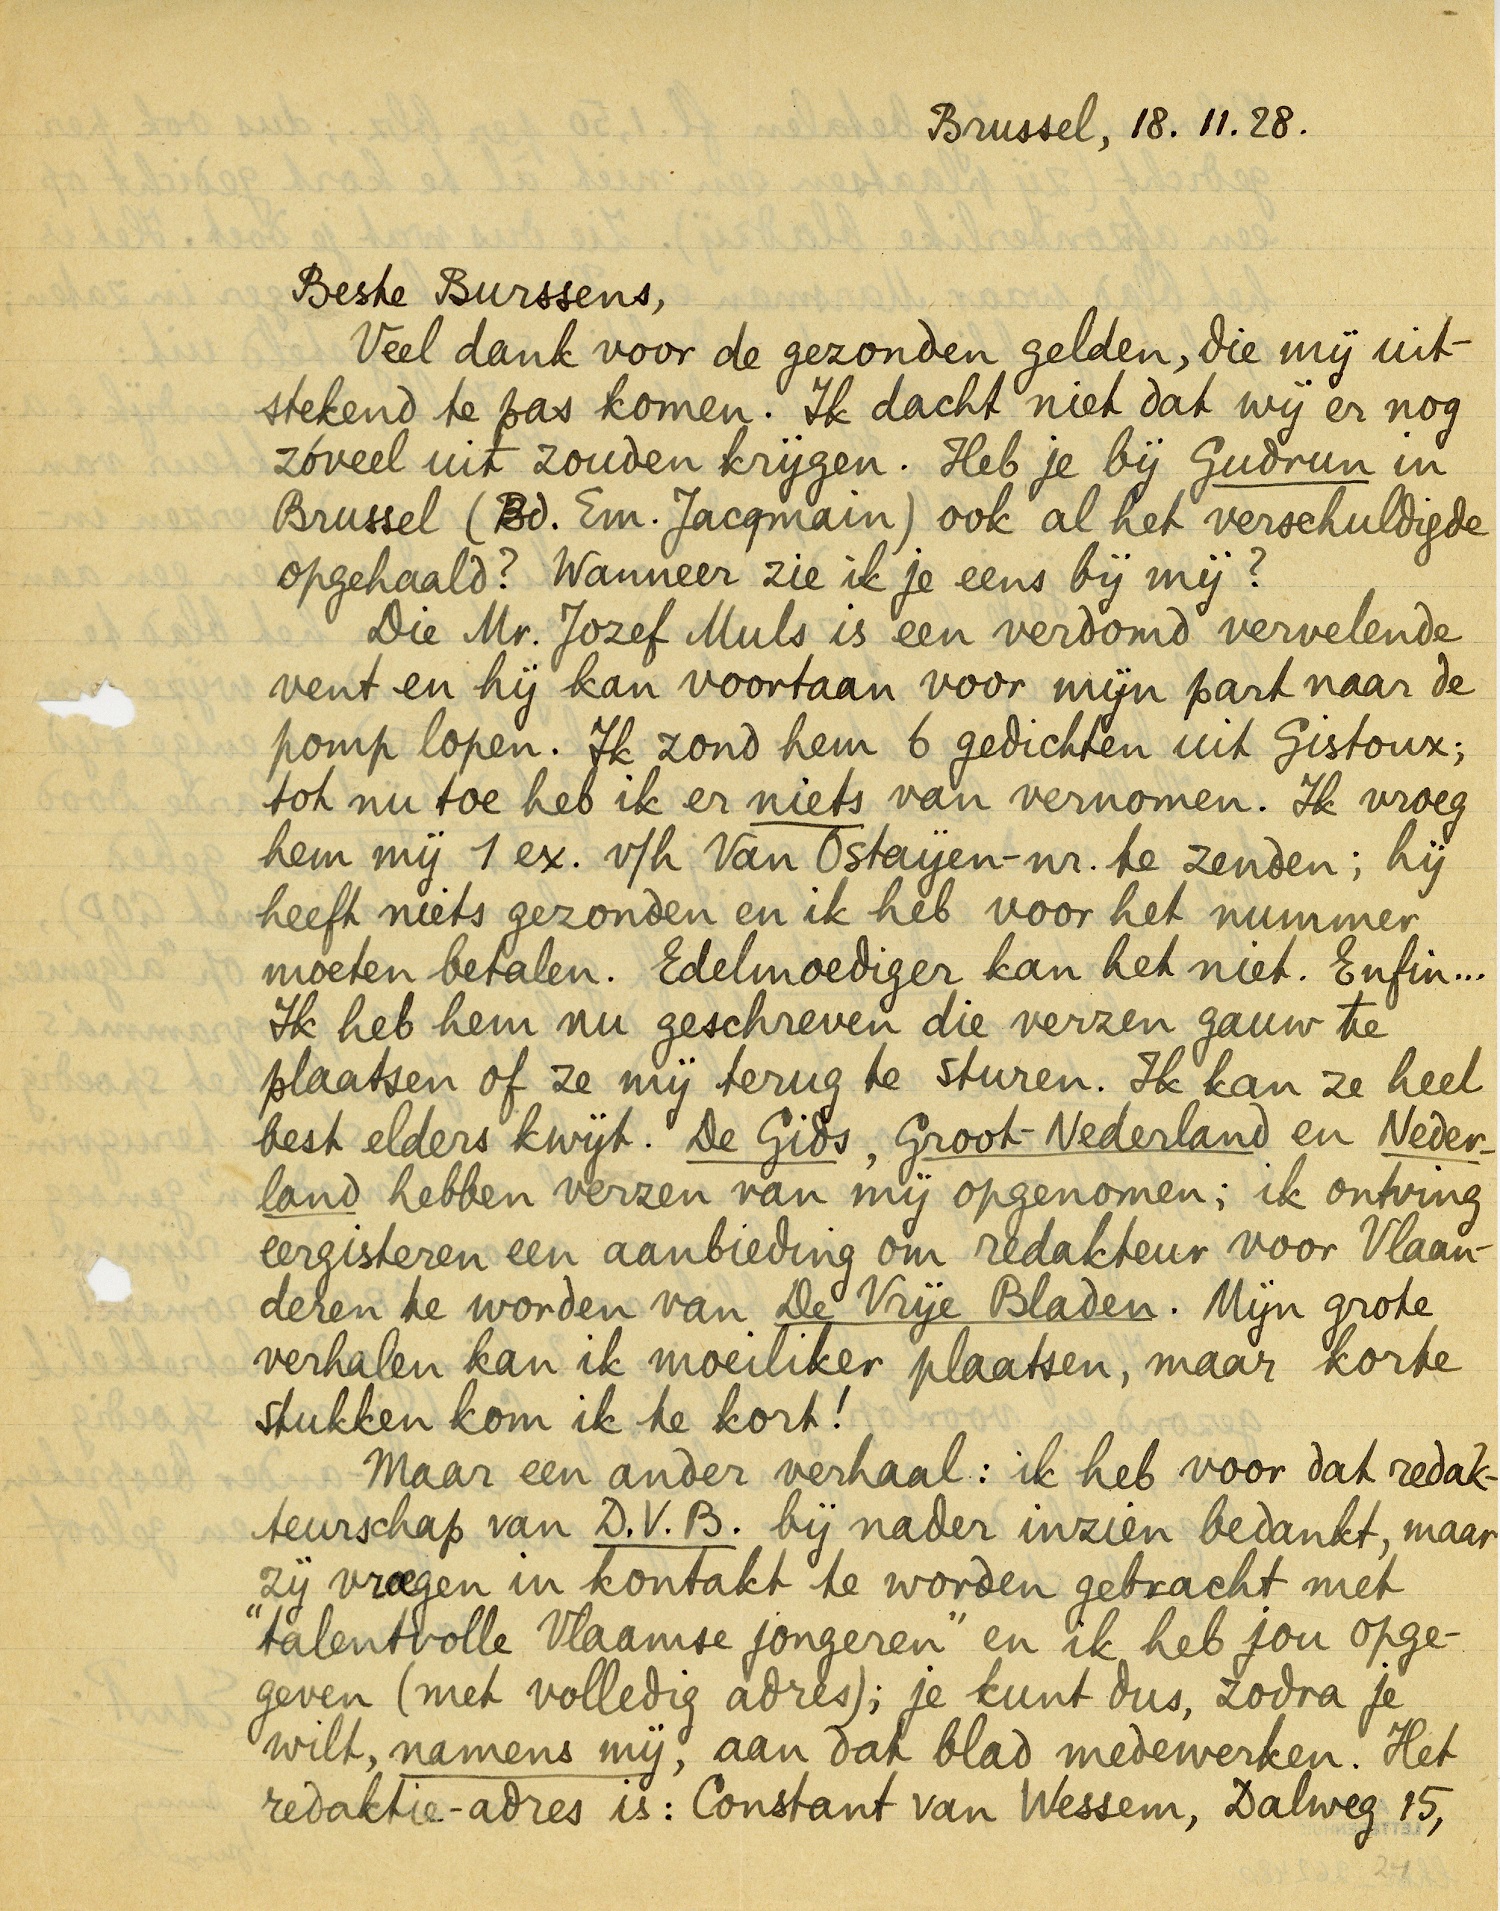 Brussel, 18. 11. 28.
Beste Burssens,
Veel dank voor de gezonden gelden, die mij uit-
stekend te pas komen. Ik dacht niet dat wij er nog
zóveel uit zouden krijgen. Heb je bij Gudrun in
Brussel (Bd. Em. Jacqmain) ook al het verschuldigde
opgehaald? Wanneer zie ik je eens bij mij?
Die Mr. Jozef Muls is een verdomd vervelende
vent en hij kan voortaan voor mijn part naar de
pomp lopen. Ik zond hem 6 gedichten uit Gistoux;
tot nu toe heb ik er niets van vernomen. Ik vroeg
hem mij 1 ex. v/h Van Ostaijen-nr. te zenden; hij
heeft niets gezonden en ik heb voor het nummer
moeten betalen. Edelmoediger kan het niet. Enfin...
Ik heb hem nu geschreven die verzen gauw te
plaatsen of ze mij terug te sturen. Ik kan ze heel
best elders kwijt. De Gids, Groot-Nederland en Neder-
land hebben verzen van mij opgenomen; ik ontving
eergisteren een aanbieding om redakteur voor Vlaan-
deren te worden van De Vrije Bladen. Mijn grote
verhalen kan ik moeiliker plaatsen, maar korte
stukken kom ik te kort!
Maar een ander verhaal: ik heb voor dat redak-
teurschap van D.V.B. bij nader inzien bedankt, maar
zij vroegen in kontakt te worden gebracht met
"talentvolle Vlaamse jongeren" en ik heb jou opge-
geven (met volledig adres); je kunt dus, zodra je
wilt, namens mij, aan dat blad medewerken. Het
redaktie-adres is: Constant van Wessem, Dalweg 15,